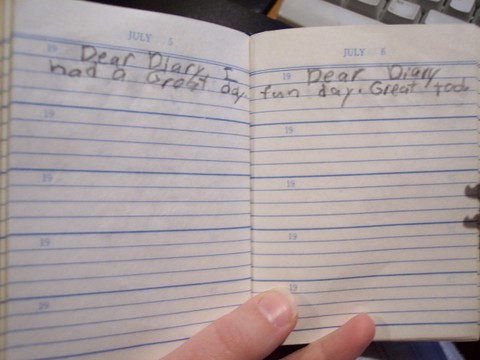 JULY 5
19 Dear Diary, I
had a Great day.
19
19
19
19
JULY 6
19 Dear Diary
fun day. Great food
19
19
19
19